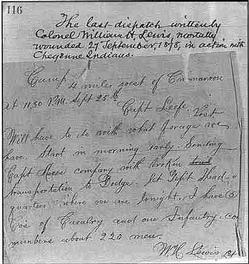 116
The last dispatch written by
Colonel William H. Lewis, mortally
wounded 27 September, 1878, in action with
Cheyenne Indians.
Camp 4 miles west of Cimmaron
at 11.30 P.M. Sept 25th
Capt Leefe, Post
Will have to do with what forage we
have. Start in morning early. Sending
Capt company with broken
transportation to Dodge. Let Capt
quarters where we are tonight, I have
Co's of Cavalry and one Infantry Co
numbers about 220 men.
WH Lewis